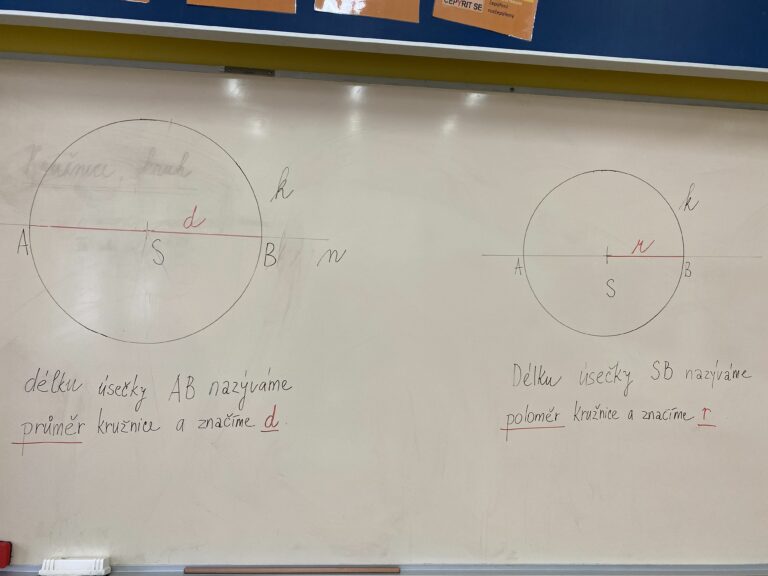 ČEPÝŘIT SE
Kružnice, kruh
k
d
A
S
B
n
délku úsečky AB nazýváme
průměr kružnice a značíme d.
k
r
A
B
S
Délku úsečky SB nazýváme
poloměr kružnice a značíme r